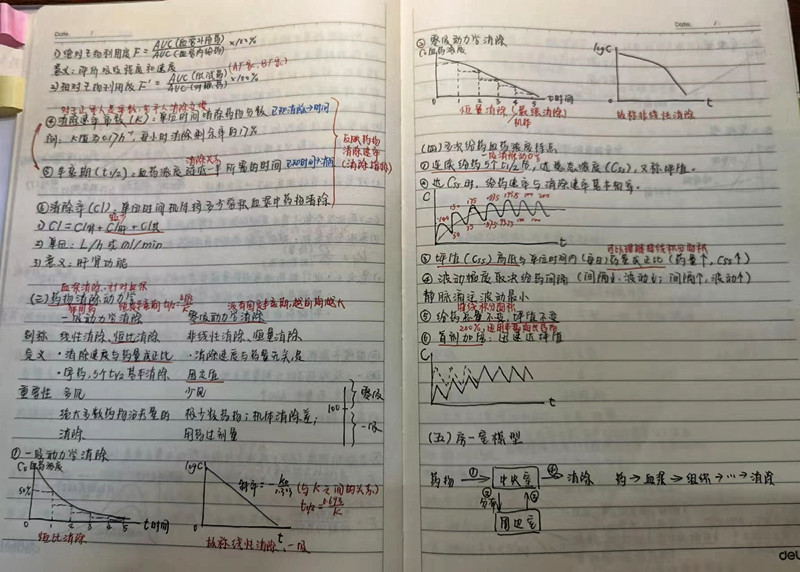 Date. /
1) 绝对生物利用度 F = AUC(血管外给药) / AUC(血管内给药) ×100%
意义: 评价吸收程度和速度
2) 相对生物利用度 F' = AUC(供试药) / AUC(对照药) ×100%
④ 消除速率常数 (K): 单位时间消除药物分数 已知消除→时间
例: K值为0.17h⁻¹, 每小时消除剩余量的17%
消除快慢
⑤ 半衰期 (t1/2): 血药浓度降低一半所需的时间 已知时间→消除
反映药物
消除速率
(消除指标)
⑥ 清除率 (Cl): 单位时间机体将多少容积血浆中药物清除
1) Cl = Cl肝 + Cl肾 + Cl其
2) 单位: L/h 或 ml/min
3) 意义: 肝肾功能
(三) 药物消除动力学
一级动力学消除 零级动力学消除
别称 线性消除、恒比消除 非线性消除、恒量消除
定义 · 消除速度与药量成正比 · 消除速度与药量无关
· 停药, 5个t1/2基本消除 固定值
重要性 多见 少见
绝大多数药物治疗量的 极少数药物; 机体消除差;
消除 用药过剂量
100
零级
一级
① 一级动力学消除
C 血药浓度
50%
1 2 3 4 5 t时间
恒比消除
logC
斜率 = -K/2.303 (与K之间的关系)
t1/2 = 0.693/K
t
故称线性消除、一级
Date. /
② 零级动力学消除
C 血药浓度
1 2 3 4 5 t时间
恒量消除 (最强消除)
机体
logC
t
故称非线性消除
(四) 多次给药血药浓度特点
一级消除动力学
① 连续给药5个t1/2后, 达稳态浓度 (Css), 又称坪值。
② 达Css时, 给药速率与消除速率基本相等。
C
t
③ 坪值 (Css) 高低与单位时间内(每日)药量成正比 (药量↑, Css↑)
④ 波动幅度取决给药间隔 (间隔↓, 波动↓; 间隔↑, 波动↑)
静脉滴注波动最小
⑤ 给药总量不变, 坪值不变
⑥ 首剂加倍: 迅速达坪值
C
t
(五) 房-室模型
药物 ① 中央室 ④ 消除
② 分布 ③
周边室
药→血浆→组织→…→消除
deli